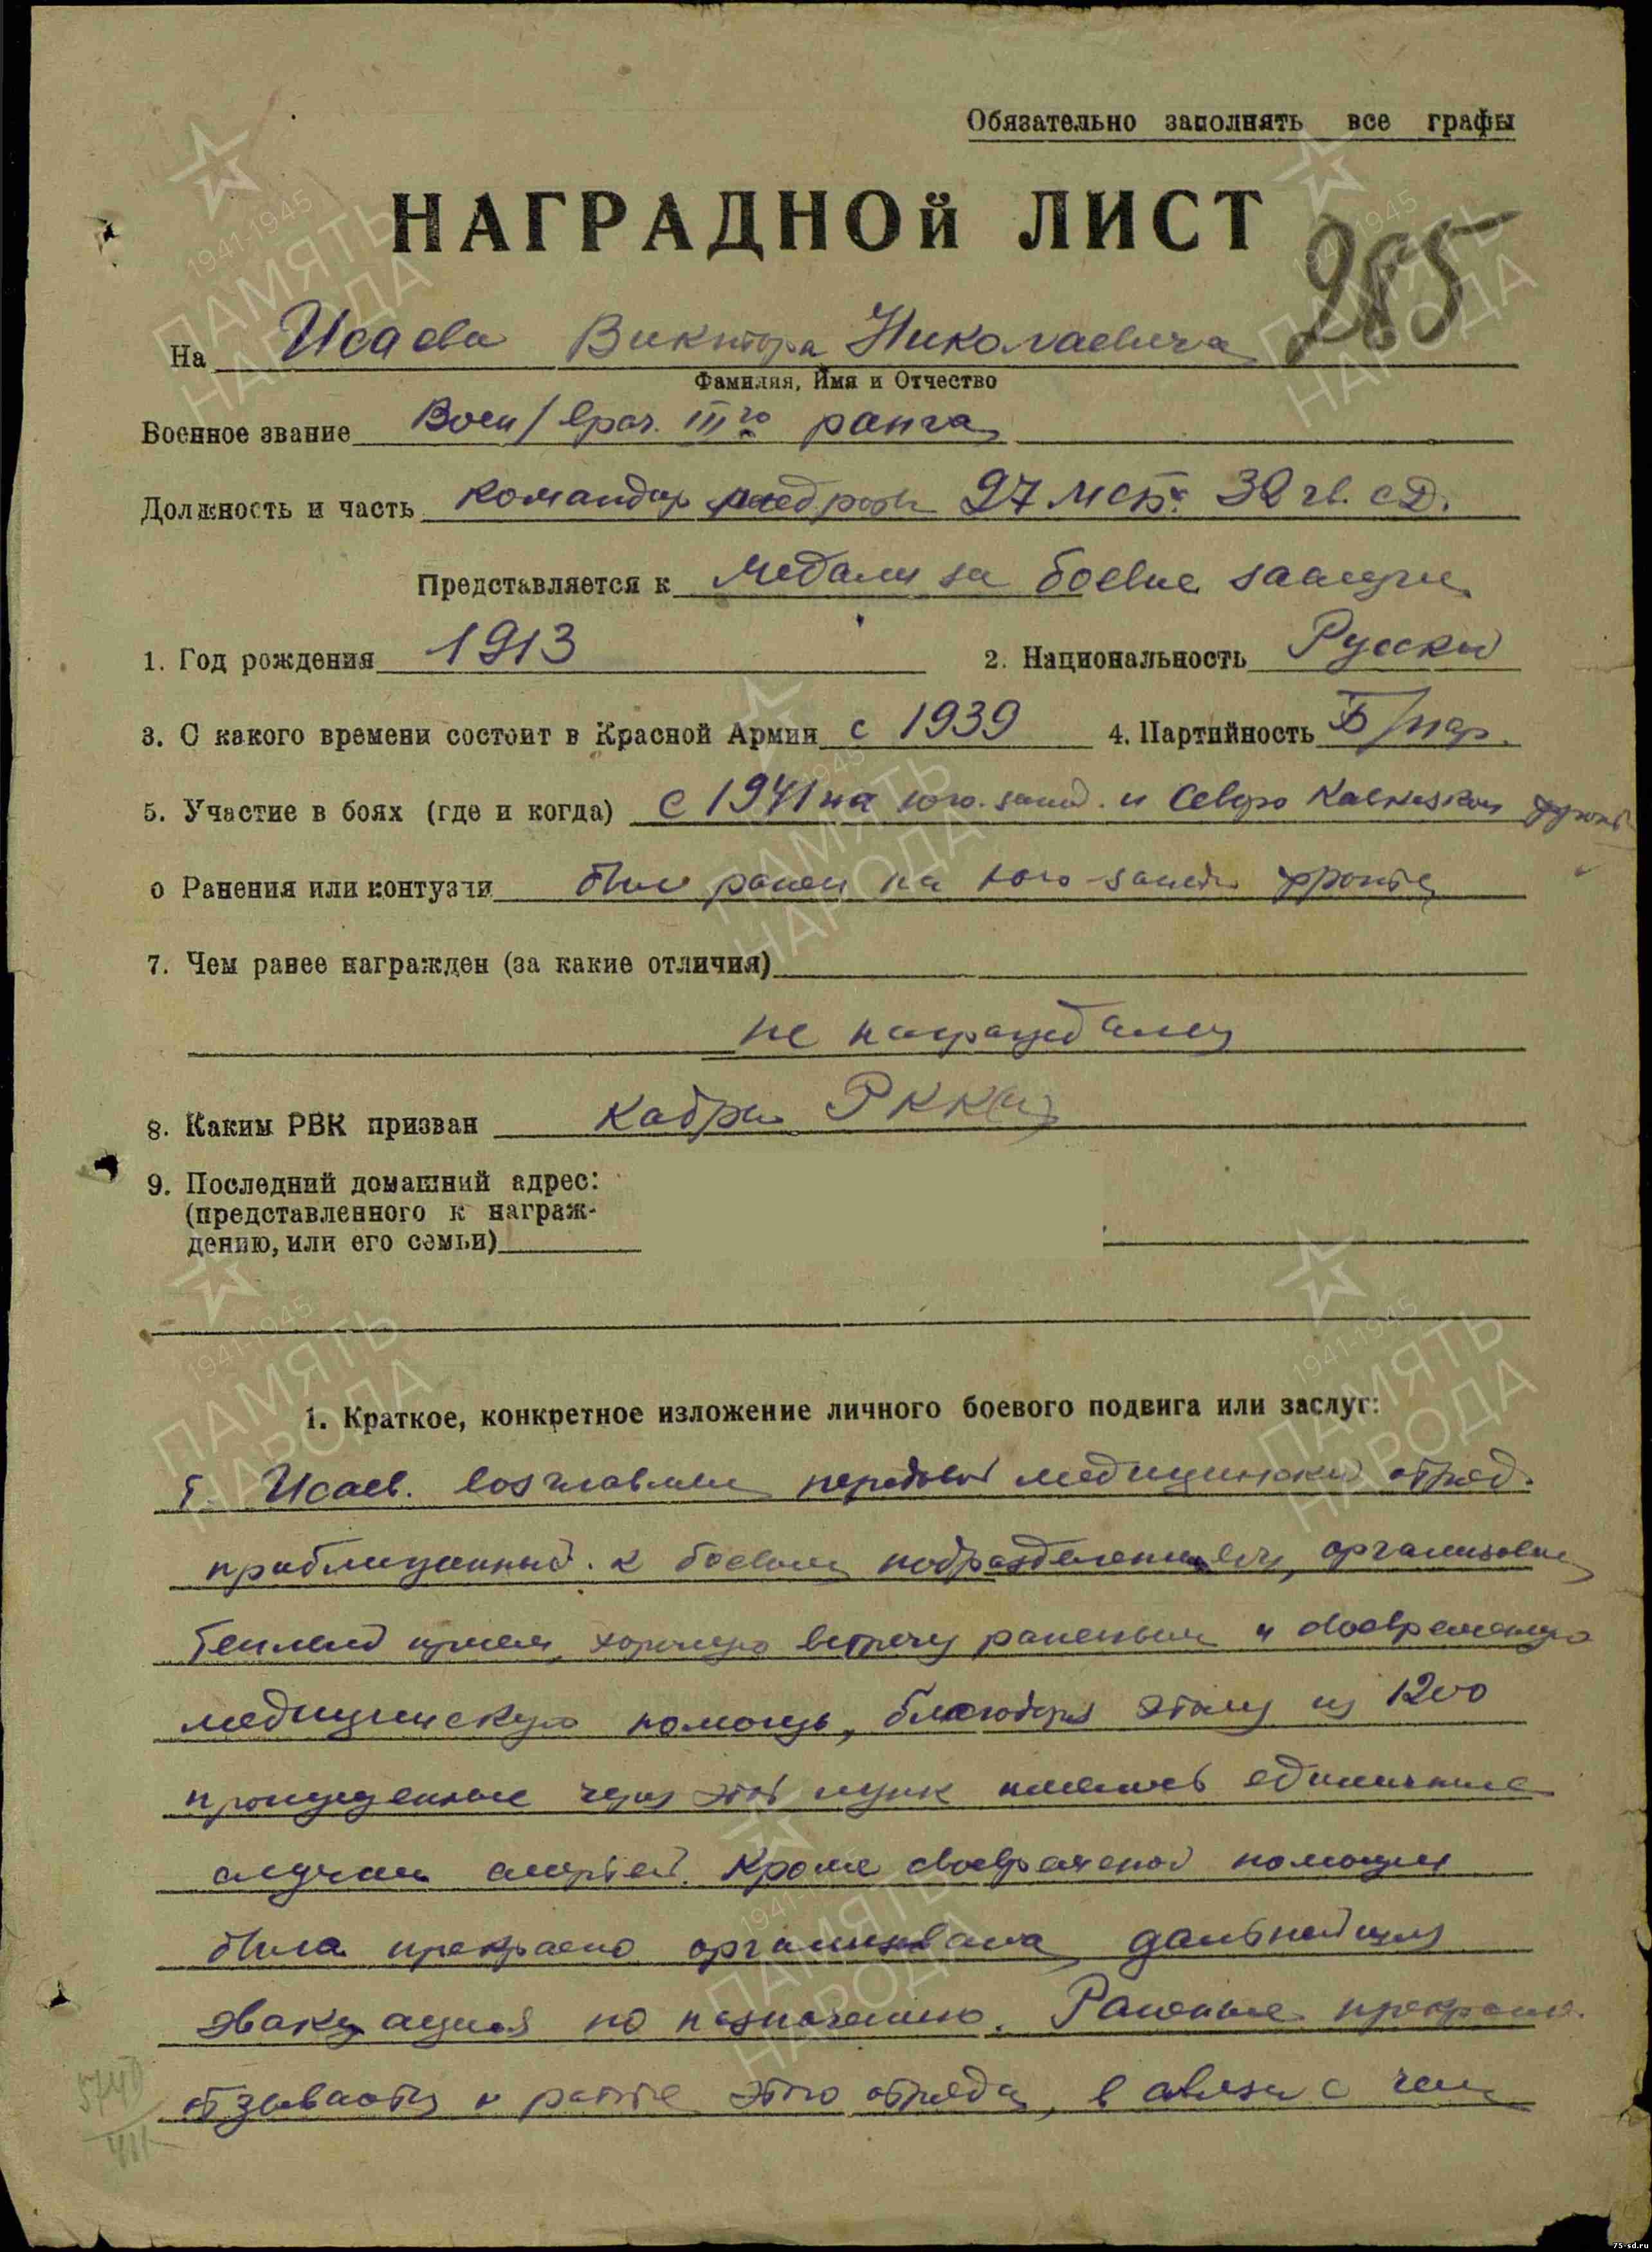 Обязательно заполнять все графы
НАГРАДНОЙ ЛИСТ
285
На Исаева Виктора Николаевича
Фамилия, Имя и Отчество
Военное звание Воен/врач III го ранга
Должность и часть командир медроты 27 мсб 32 гв. сд.
Представляется к медали за боевые заслуги
1. Год рождения 1913 2. Национальность Русский
3. С какого времени состоит в Красной Армии с 1939 4. Партийность Б/пар.
5. Участие в боях (где и когда) с 1941 на юго. запад. и Северо Кавказском фронт
о Ранения или контузии был ранен на юго-запад фронте
7. Чем ранее награжден (за какие отличия)
не награждался
8. Каким РВК призван Кадры РККА
9. Последний домашний адрес:
(представленного к награж-
дению, или его семьи)
1. Краткое, конкретное изложение личного боевого подвига или заслуг:
т. Исаев. возглавляя передовой медицинский отряд.
приближенный. к боевым подразделениям, организовал
теплый прием, хорошую встречу раненым и своевременную
медицинскую помощь, благодаря этому из 1200
пропущенные через этот пунк имелись единичные
случаи смертей. Кроме своевременой помощи
была прекрасно организована дальнейшая
эвакуация по назначению. Раненые прекрасно
отзываются о работе этого отряда, в связи с чем
5740
411
1941-1945
ПАМЯТЬ
НАРОДА
75-sd.ru